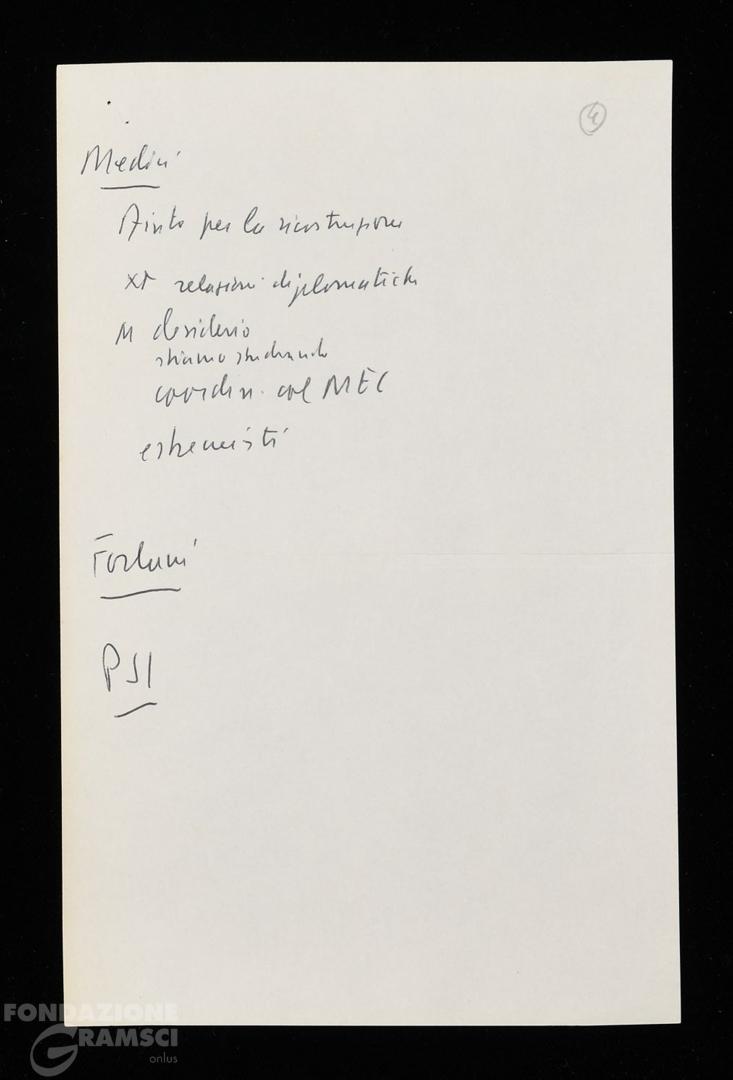 4
Medici
Aiuto per la ricostruzione
xx relazioni diplomatiche
M desiderio
stiamo studiando
coordin. col MEC
estremisti
Forlani
PSI
FONDAZIONE
GRAMSCI
onlus